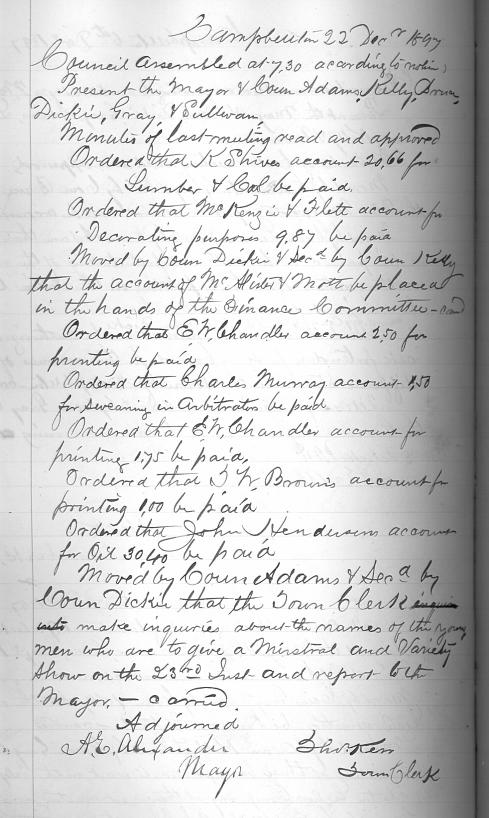 Campbellton 22 Decr 1897
Council Assembled at 7,30 according to notice
Present the Mayor & Coun Adams, Kelly,
Dickie, Gray, & Sullivan
Minutes of last meeting read and approved
Ordered that K Shives account 20,66 for
Lumber & Coal be paid
Ordered that McKenzie & Flett account for
Decorating purposes 9,87 be paid
Moved by Coun Dickie & Secd by Coun Kelly
that the account of & Mott be placed
in the hands of the Finance Committee - card
Ordered that E. W. Chandler account 2,50 for
printing be paid
Ordered that Charles Murray account 1,50
for swearing in Arbitrators be paid
Ordered that E. W. Chandler account for
printing 1,75 be paid,
Ordered that W. Browns account for
printing 1,00 be paid
Ordered that John Hendersons account
for Oil 30,40 be paid
Moved by Coun Adams & Secd by
Coun Dickie that the Town Clerk inquire
into make inquiries about the names of the young
men who are to give a Minstral and Variety
Show on the 23rd Inst and report to the
Mayor. - carried.
Adjourned
A. E. Alexander
Mayor
Town Clerk